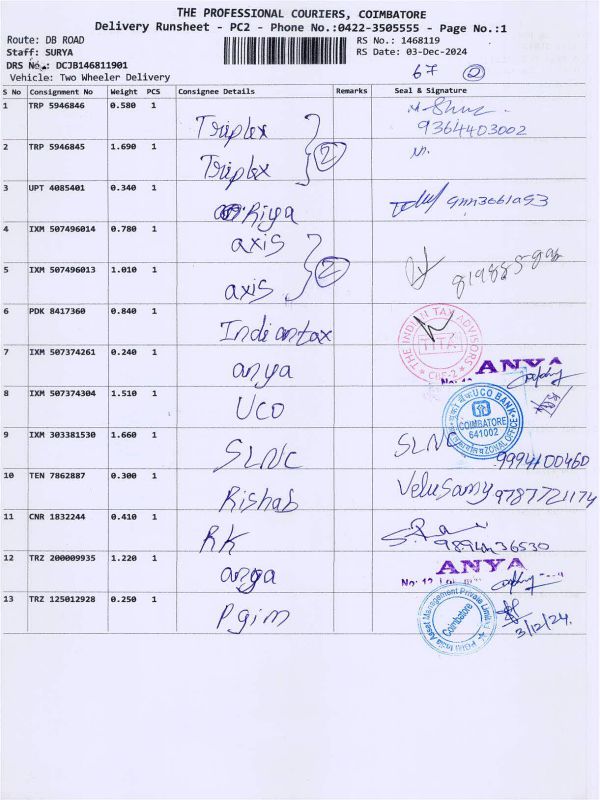 THE PROFESSIONAL COURIERS, COIMBATORE
Delivery Runsheet - PC2 - Phone No.:0422-3505555 - Page No.:1
Route: DB ROAD
RS No.: 1468119
Staff: SURYA
RS Date: 03-Dec-2024
DRS No.: DCJB146811901
Vehicle: Two Wheeler Delivery
67 2
S No Consignment No Weight PCS Consignee Details Remarks Seal & Signature
1 TRP 5946846 0.580 1 Triplex
9364403002
2 TRP 5946845 1.690 1 Triplex 2
3 UPT 4085401 0.340 1 Riya
4 IXM 507496014 0.780 1 axis
5 IXM 507496013 1.010 1 axis 2
6 PDK 8417360 0.840 1 Indiantax
THE INDIAN TAX ADVISORS
ITTA
CBE-2
7 IXM 507374261 0.240 1 anya
ANYA
8 IXM 507374304 1.510 1 UCO
UCO BANK
COIMBATORE
641002
ZONAL OFFICE
9 IXM 303381530 1.660 1 SLNC SLNC
9994100460
10 TEN 7862887 0.300 1 Rishab Velusamy 9787721174
11 CNR 1832244 0.410 1 RK
12 TRZ 200009935 1.220 1 anya
ANYA
No: 12
13 TRZ 125012928 0.250 1 Pgim
PGIM India Asset Management Private Limited
Coimbatore
3/12/24.